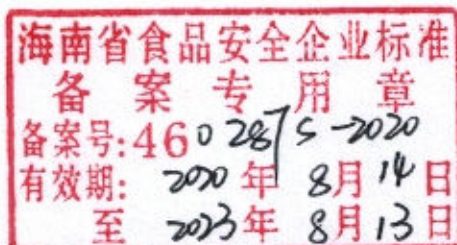 海南省食品安全企业标准
备案专用章
备案号:460287S-2020
有效期: 2020年8月14日
至 2023年8月13日